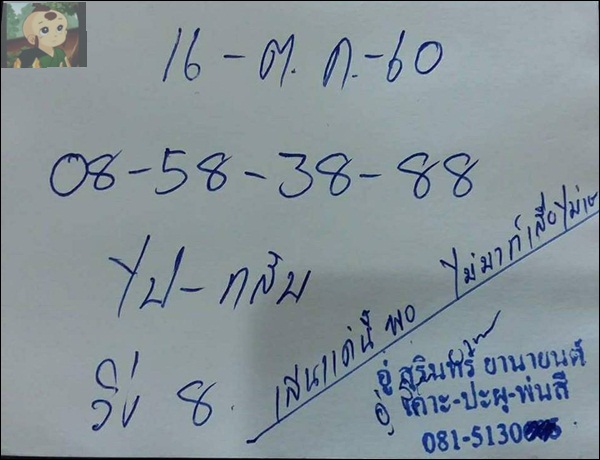 16-ต.ค.-60
08-58-38-88
ไป-กลับ
วิ่ง 8.
เล่นแค่นี้ พอ ไม่มาก็เสีย
อู่ สุรินทร์ ยานายนต์
อู่ เคาะ-ปะผุ-พ่นสี
081-5130